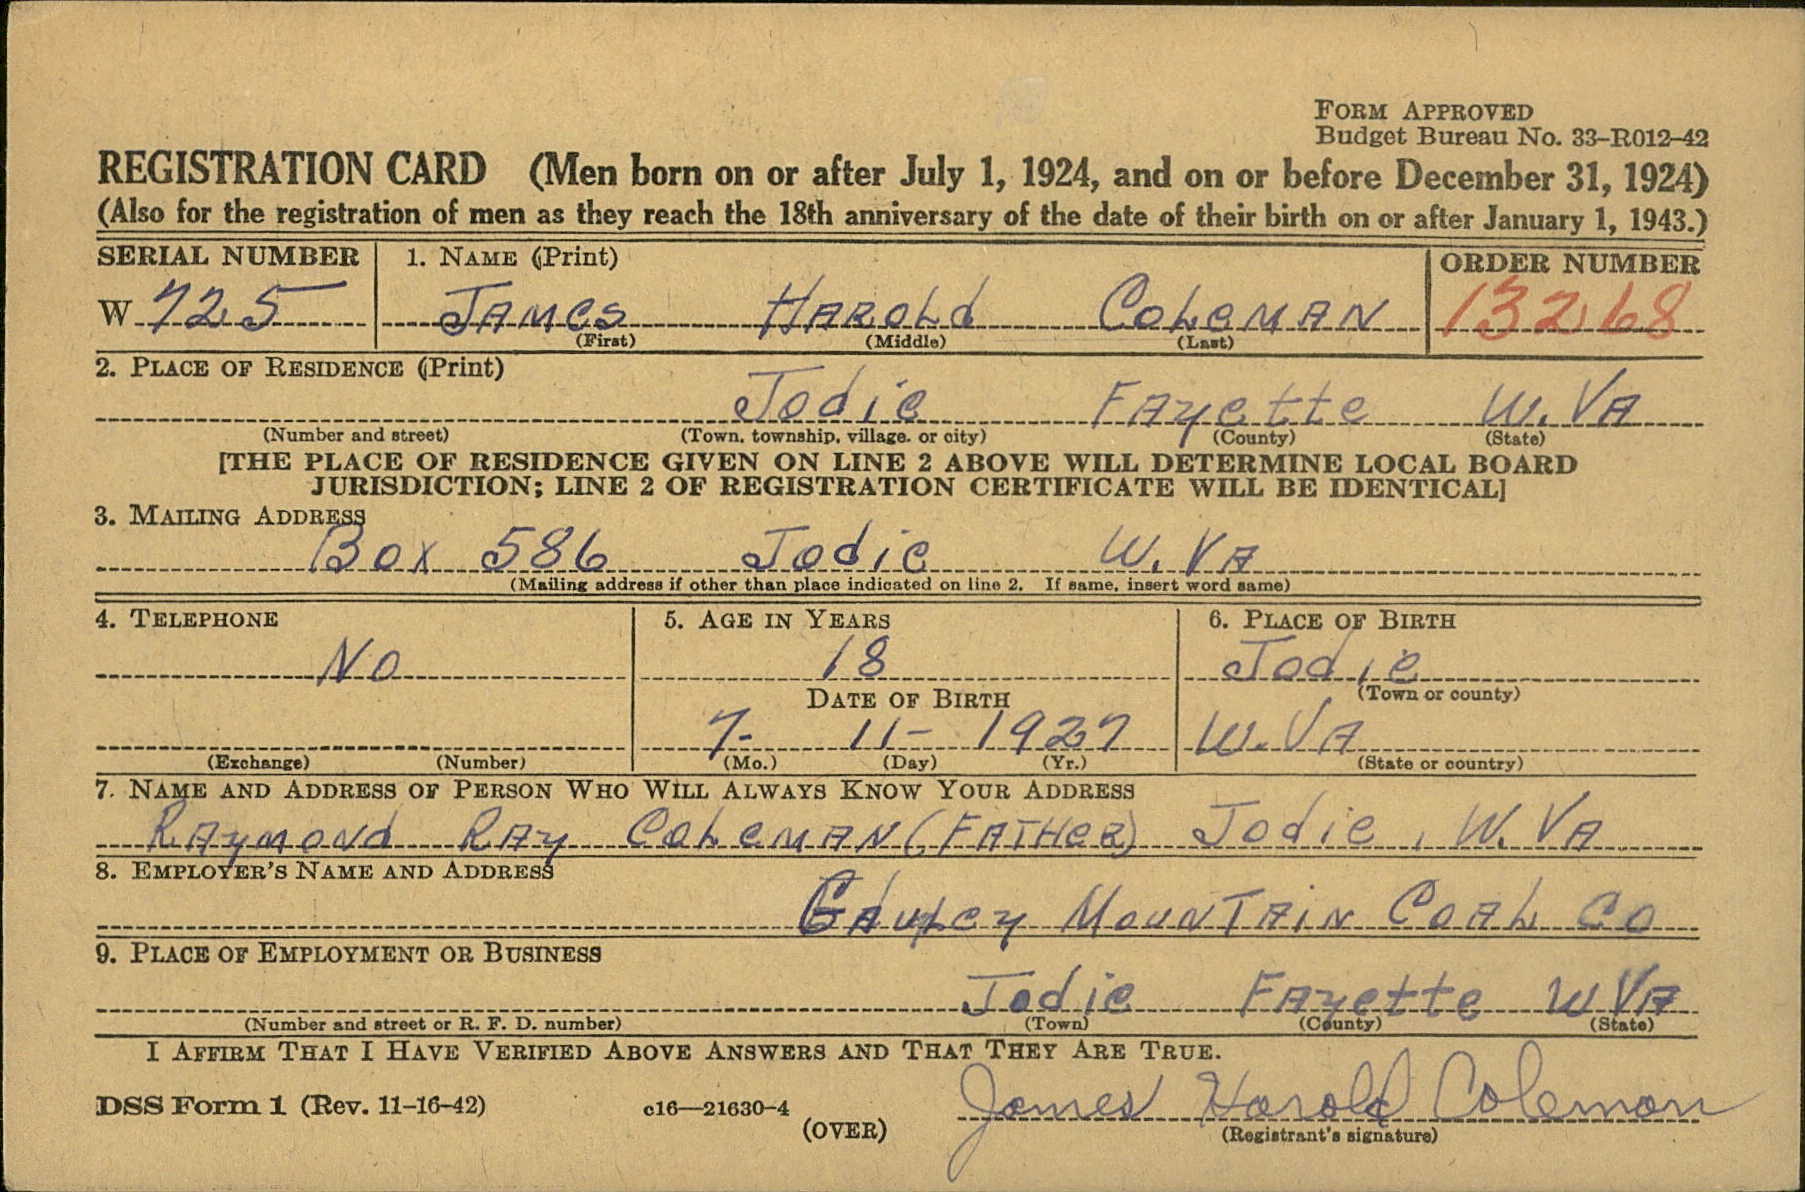 FORM APPROVED
Budget Bureau No. 33-R012-42
REGISTRATION CARD (Men born on or after July 1, 1924, and on or before December 31, 1924)
(Also for the registration of men as they reach the 18th anniversary of the date of their birth on or after January 1, 1943.)
SERIAL NUMBER 1. NAME (Print) ORDER NUMBER
W 725 JAMES HAROLD COLEMAN 13268
(First) (Middle) (Last)
2. PLACE OF RESIDENCE (Print)
Jodie FAyette W. VA
(Number and street) (Town, township, village, or city) (County) (State)
[THE PLACE OF RESIDENCE GIVEN ON LINE 2 ABOVE WILL DETERMINE LOCAL BOARD
JURISDICTION; LINE 2 OF REGISTRATION CERTIFICATE WILL BE IDENTICAL]
3. MAILING ADDRESS
Box 586 Jodie W. VA
(Mailing address if other than place indicated on line 2. If same, insert word same)
4. TELEPHONE 5. AGE IN YEARS 6. PLACE OF BIRTH
No 18 Jodie
DATE OF BIRTH (Town or county)
7- 11- 1927 W. VA
(Exchange) (Number) (Mo.) (Day) (Yr.) (State or country)
7. NAME AND ADDRESS OF PERSON WHO WILL ALWAYS KNOW YOUR ADDRESS
RAymond RAy COLEMAN (FATHER) Jodie, W. VA
8. EMPLOYER'S NAME AND ADDRESS
GAuley MOUNTAIN COAL CO
9. PLACE OF EMPLOYMENT OR BUSINESS
Jodie FAyette W VA
(Number and street or R. F. D. number) (Town) (County) (State)
I AFFIRM THAT I HAVE VERIFIED ABOVE ANSWERS AND THAT THEY ARE TRUE.
DSS Form 1 (Rev. 11-16-42) c16—21630-4 James Harold Coleman
(OVER) (Registrant's signature)